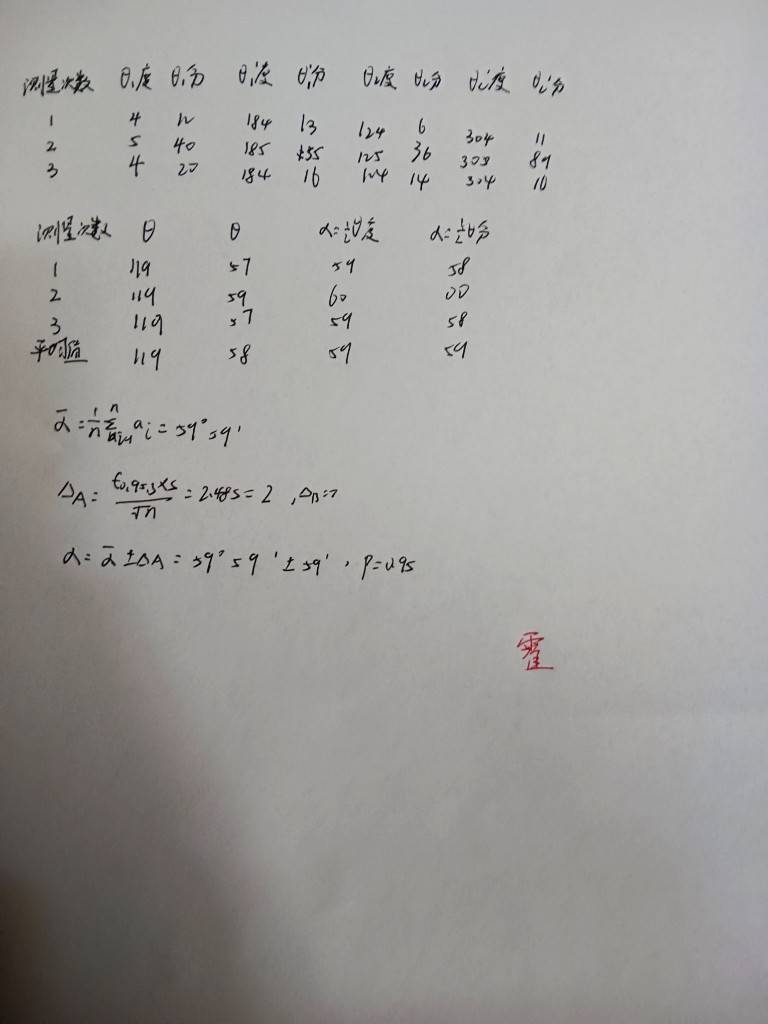 测量次数 θ₁度 θ₁分 θ₁'度 θ₁'分 θ₂度 θ₂分 θ₂'度 θ₂'分
1 4 12 184 13 124 6 304 11
2 5 40 185 35 125 36 303 89
3 4 20 184 16 124 14 304 10
测量次数 θ θ α=½θ度 α=½θ分
1 119 57 59 58
2 119 59 60 00
3 119 57 59 58
平均值 119 58 59 59
ᾱ=1/n Σ aᵢ=59°59'
ΔA= t₀.₉₅,₃×s/√n =2.48s=2 ,ΔB=
α=ᾱ±ΔA=59°59'±59',P=0.95
霍